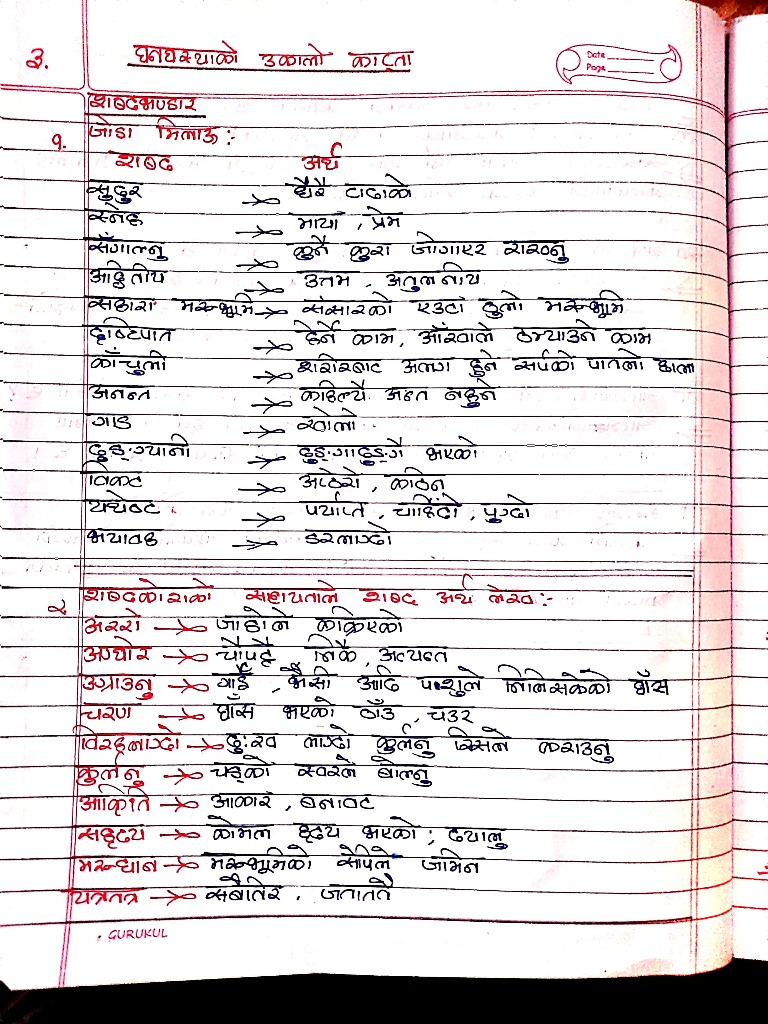 ३. घनघस्याको उकालो काट्दा
Date
Page
शब्दभण्डार
१. जोडा मिलाऊ :-
शब्द अर्थ
सुदुर → धेरै टाढाको
स्नेह → माया , प्रेम
सँगाल्नु → कुनै कुरा जोगाएर राख्नु
अद्वितीय → उत्तम , अतुलनीय
सहारा मरुभूमि → संसारको एउटा ठुलो मरुभूमि
दृष्टिपात → हेर्ने काम, आँखाले ठम्याउने काम
काँचुली → शरीरबाट अलग हुने सर्पको पातलो छाला
अनन्त → कहिल्यै अन्त नहुने
गाड → खोलो
ढुङ्ग्यानी → ढुङ्गाढुङ्गै भएको
विकट → अप्ठेरो , कठिन
यथेष्ट → पर्याप्त , चाहिँदो , पुग्दो
भयावह → डरलाग्दो
२ शब्दकोशको सहायताले शब्द अर्थ लेख :-
अररो → जाडोले कक्रिएको
अघोर → चौपट्टै निकै , अत्यन्त
उग्राउनु → गाई , भैंसी आदि पशुले निलिसकेको घाँस
चरण → घाँस भएको ठाँउ , चउर
विरहलाग्दो → दुःख लाग्दो कुर्लनु रिसले कराउनु
कुर्लनु → चड्को स्वरले बोल्नु
आकृति → आकार , बनावट
सहृदय → कोमल हृदय भएको ; दयालु
मरुधान → मरुभूमिको सेपिलो जमिन
यत्रतत्र → सबैतिर , जताततै
GURUKUL